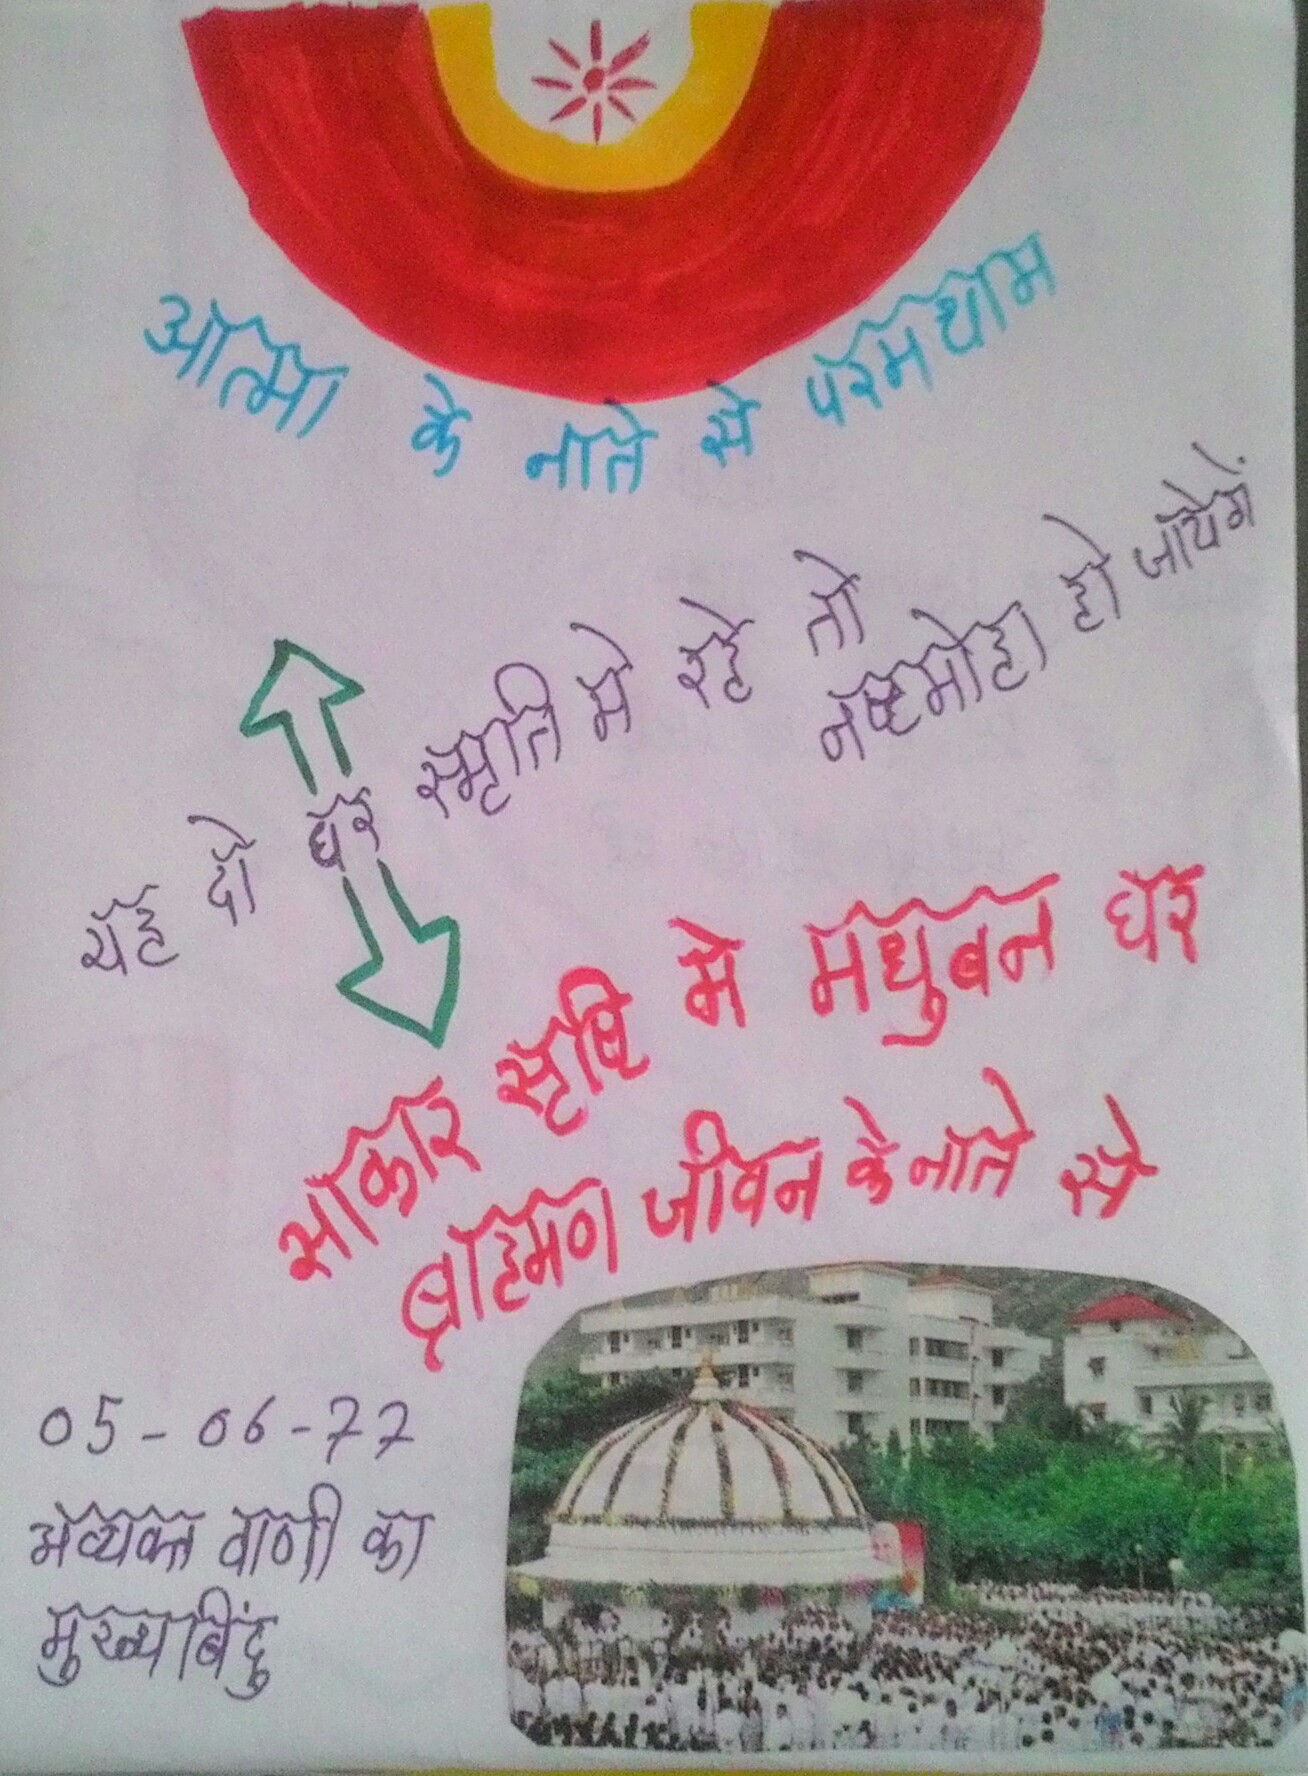 आत्मा के नाते से परमधाम
यह दो घर स्मृति मे रहे तो
नष्टमोहा हो जायेगें
साकार सृष्टि मे मधुबन घर
ब्राहमण जीवन के नाते से
05-06-77
अव्यक्त वाणी का
मुख्य बिंदु